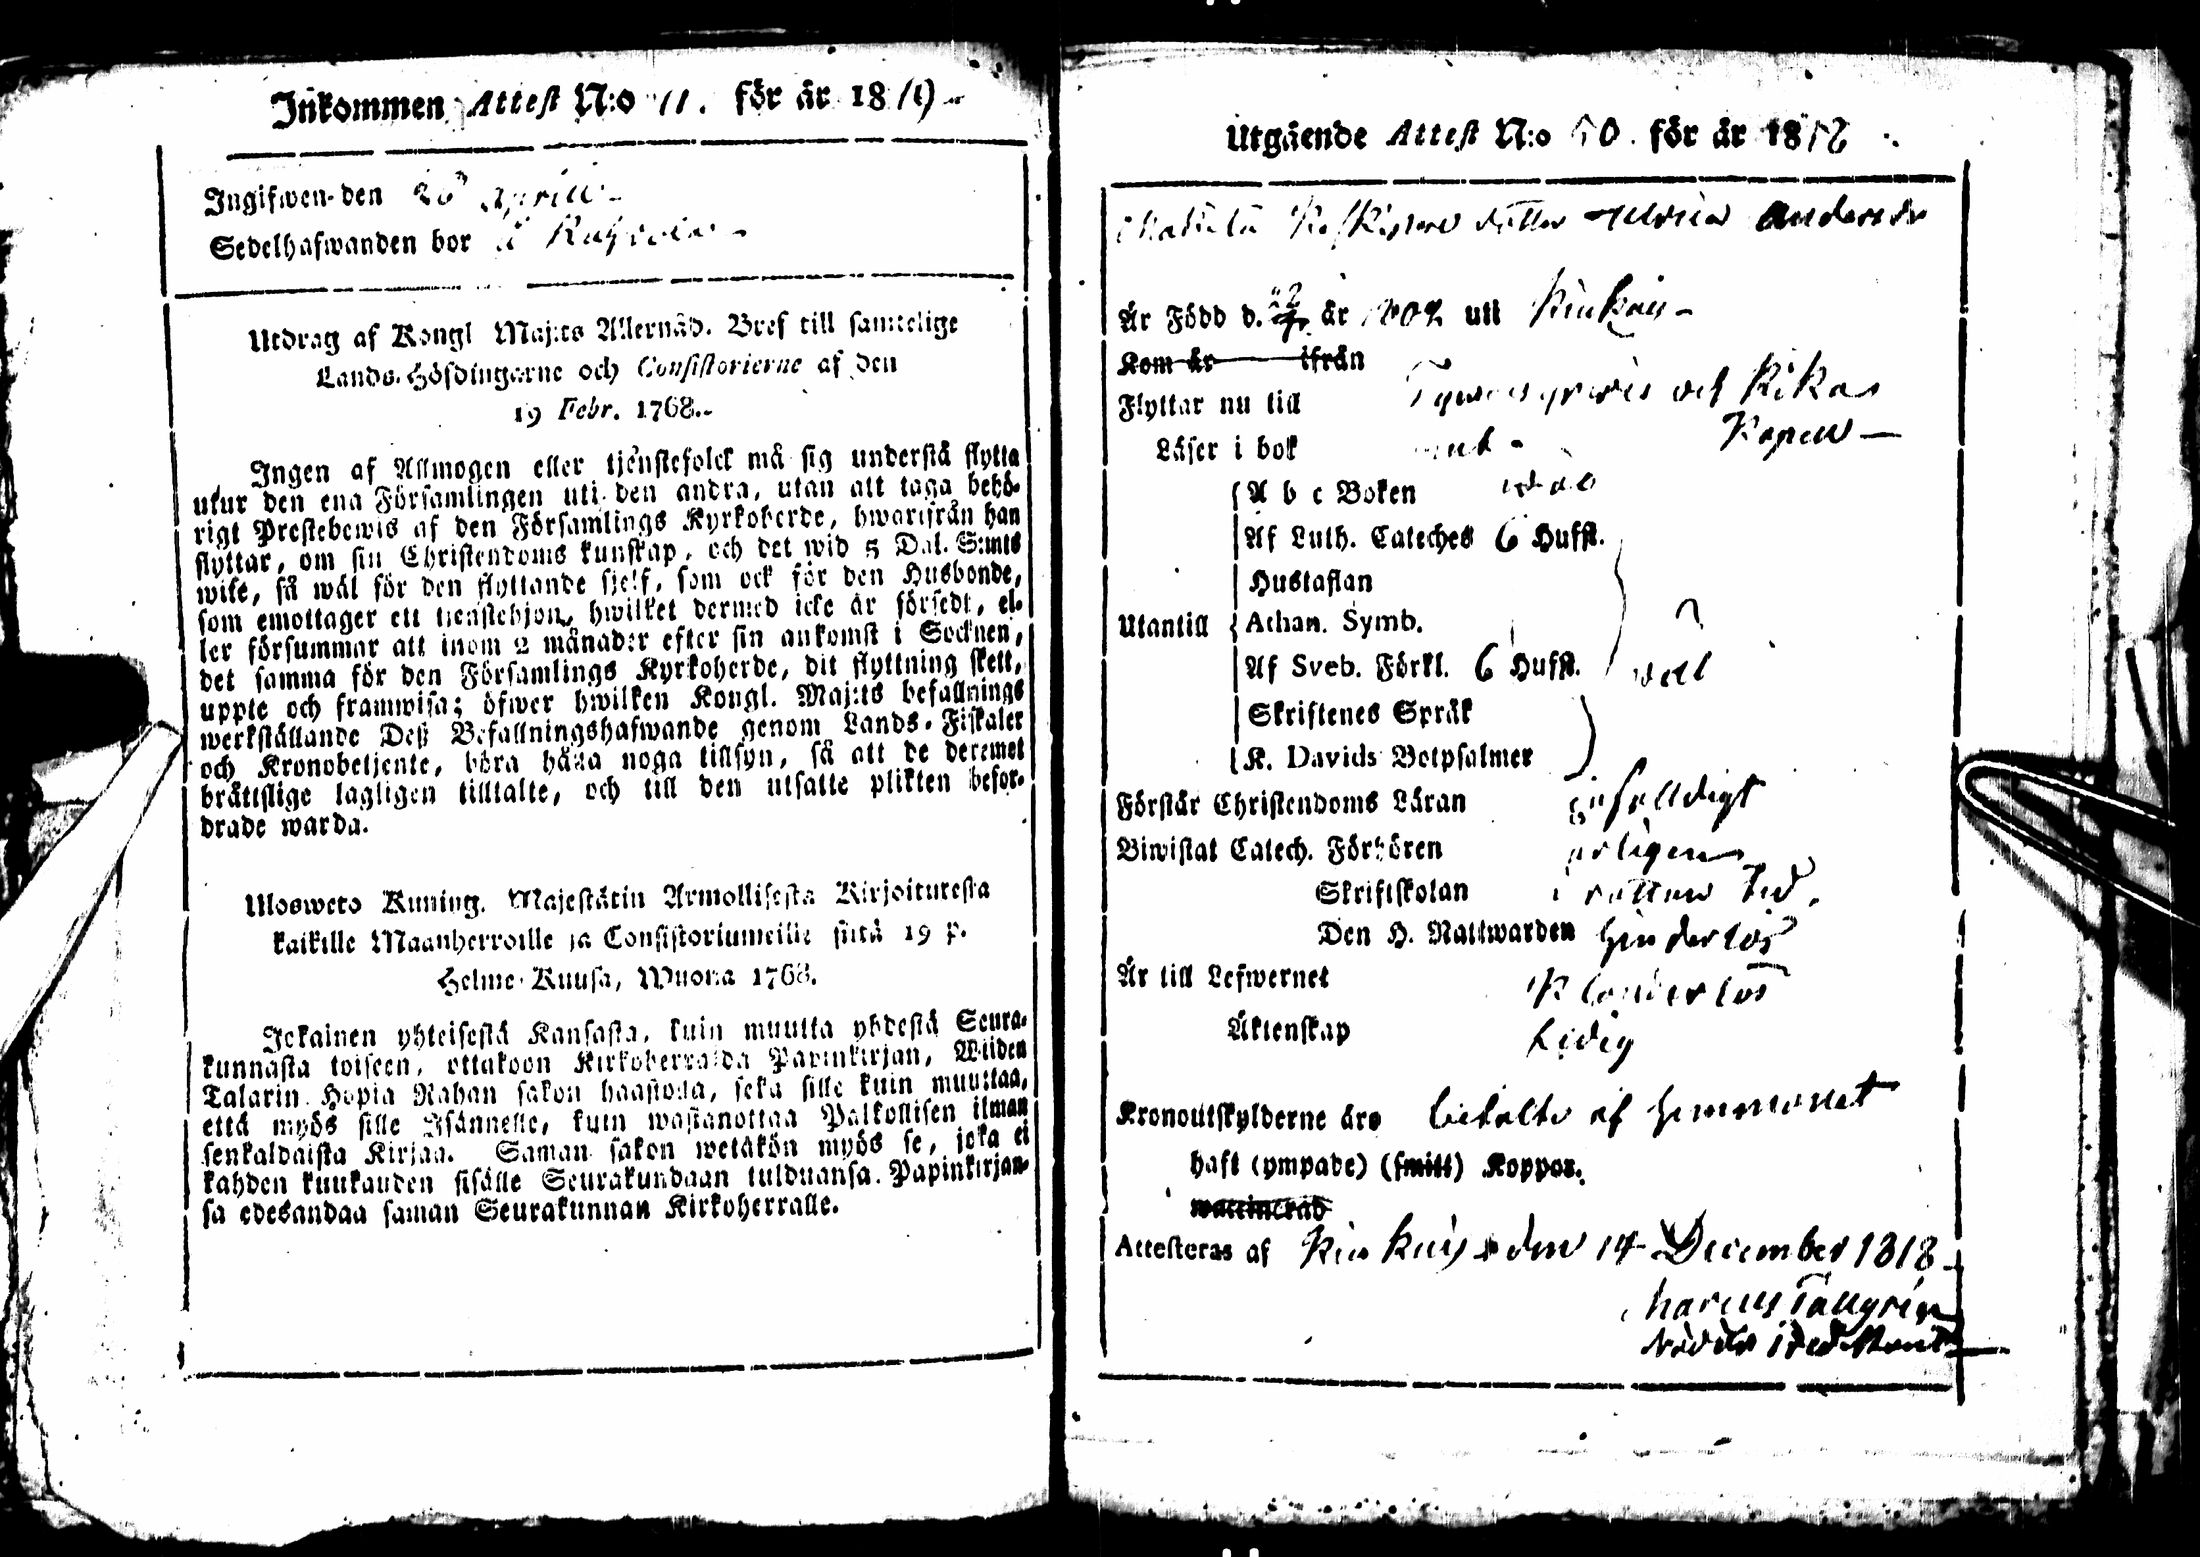 Inkommen Attest N:o 11. för år 1819
Ingifwen den 26 Aprill
Sedelhafwanden bor i
Utdrag af Kongl Maj:ts Allernåd. Bref till samtelige
Lands-Höfdingarne och Consistorierne af den
19 Febr. 1768.
Ingen af Allmogen eller tjenstefolck må sig understå flytta
utur den ena Församlingen uti den andra, utan att taga behö-
rigt Prestebewis af den Församlings Kyrkoherde, hwarifrån han
flyttar, om sin Christendoms kunskap, och det wid 5 Dal. S:mts
wite, så wäl för den flyttande sjelf, som ock för den Husbonde,
som emottager ett tienstehjon, hwilket dermed icke är försedt, el-
ler försummar att inom 2 månader efter sin ankomst i Socknen,
det samma för den Församlings Kyrkoherde, dit flyttning skett,
uppte och framwisa; öfwer hwilken Kongl. Maj:ts befallnings
werkställande Deß Befallningshafwande genom Lands-Fiskaler
och Kronobetjente, böra hålla noga tillsyn, så att de deremot
bråttslige lagligen tilltalte, och till den utsatte plikten befor-
drade warda.
Ulosweto Kuning. Majestätin Armollisesta Kirjoituresta
kaikille Maanherroille ja Consistoriumeille siitä 19 p.
Helme-Kuusa, Wuonna 1768.
Jokainen yhteisestä Kansasta, kuin muutta yhdestä Seura-
kunnasta toiseen, ottakoon Kirkoherralda Papinkirjan, Wiiden
Talarin Hopia Rahan sakon haastolla, sekä sille kuin muuttaa,
että myös sille Isännelle, kuin wastanottaa Palkollisen ilman
senkaldaista Kirjaa. Saman sakon wetäkön myös se, joka ei
kahden kuukauden sisälle Seurakundaan tulduansa Papinkirjan-
sa edesandaa saman Seurakunnan Kirkoherralle.
Utgående Attest N:o 50. för år 1818
dotter Maria Anders dr
Är Född d. år 1802 uti Kiukais
Kom år ifrån
Flyttar nu till och Kikas
Kapell
Läser i bok
A b c Boken wäl
Af Luth. Cateches 6 Hufst.
Hustaflan
Utantill Athan. Symb.
Af Sveb. Förkl. 6 Hufst. wäl
Skriftenes Språk
K. Davids Botpsalmer
Förstår Christendoms Läran enfalldigt
Biwistat Catech. Förhören årligen
Skriftskolan i rättan tid.
Den H. Nattwarden hinderlös
Är till Lefwernet Klanderlös
Äktenskap Ledig
Kronoutskylderne äro betalte af hemmanet
haft (ympade) (smitt) Koppor.
Attesteras af Kiukais den 14 December 1818
Marcus Tallgren